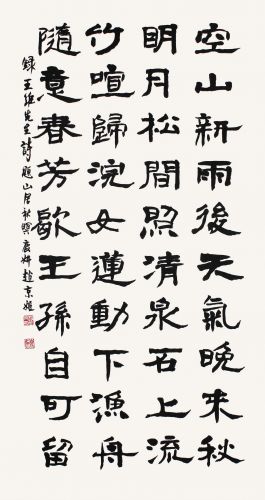 空山新雨後天氣晚来秋
眀月松間照清泉石上流
竹喧歸浣女蓮動下漁舟
隨意春芳歇王孫自可留
錄王維先生詩題山居秋暝趙京